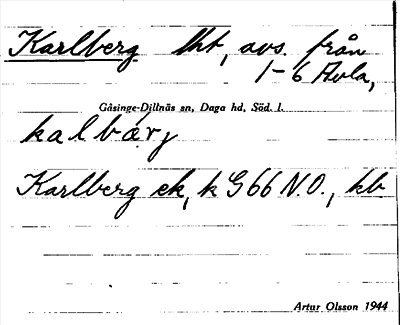 Karlberg lht, avs. från
1-6 Avla,
Gåsinge-Dillnäs sn, Daga hd, Söd. l.
kalbärj
Karlberg ek, k G 66 N.O., kb
Artur Olsson 1944